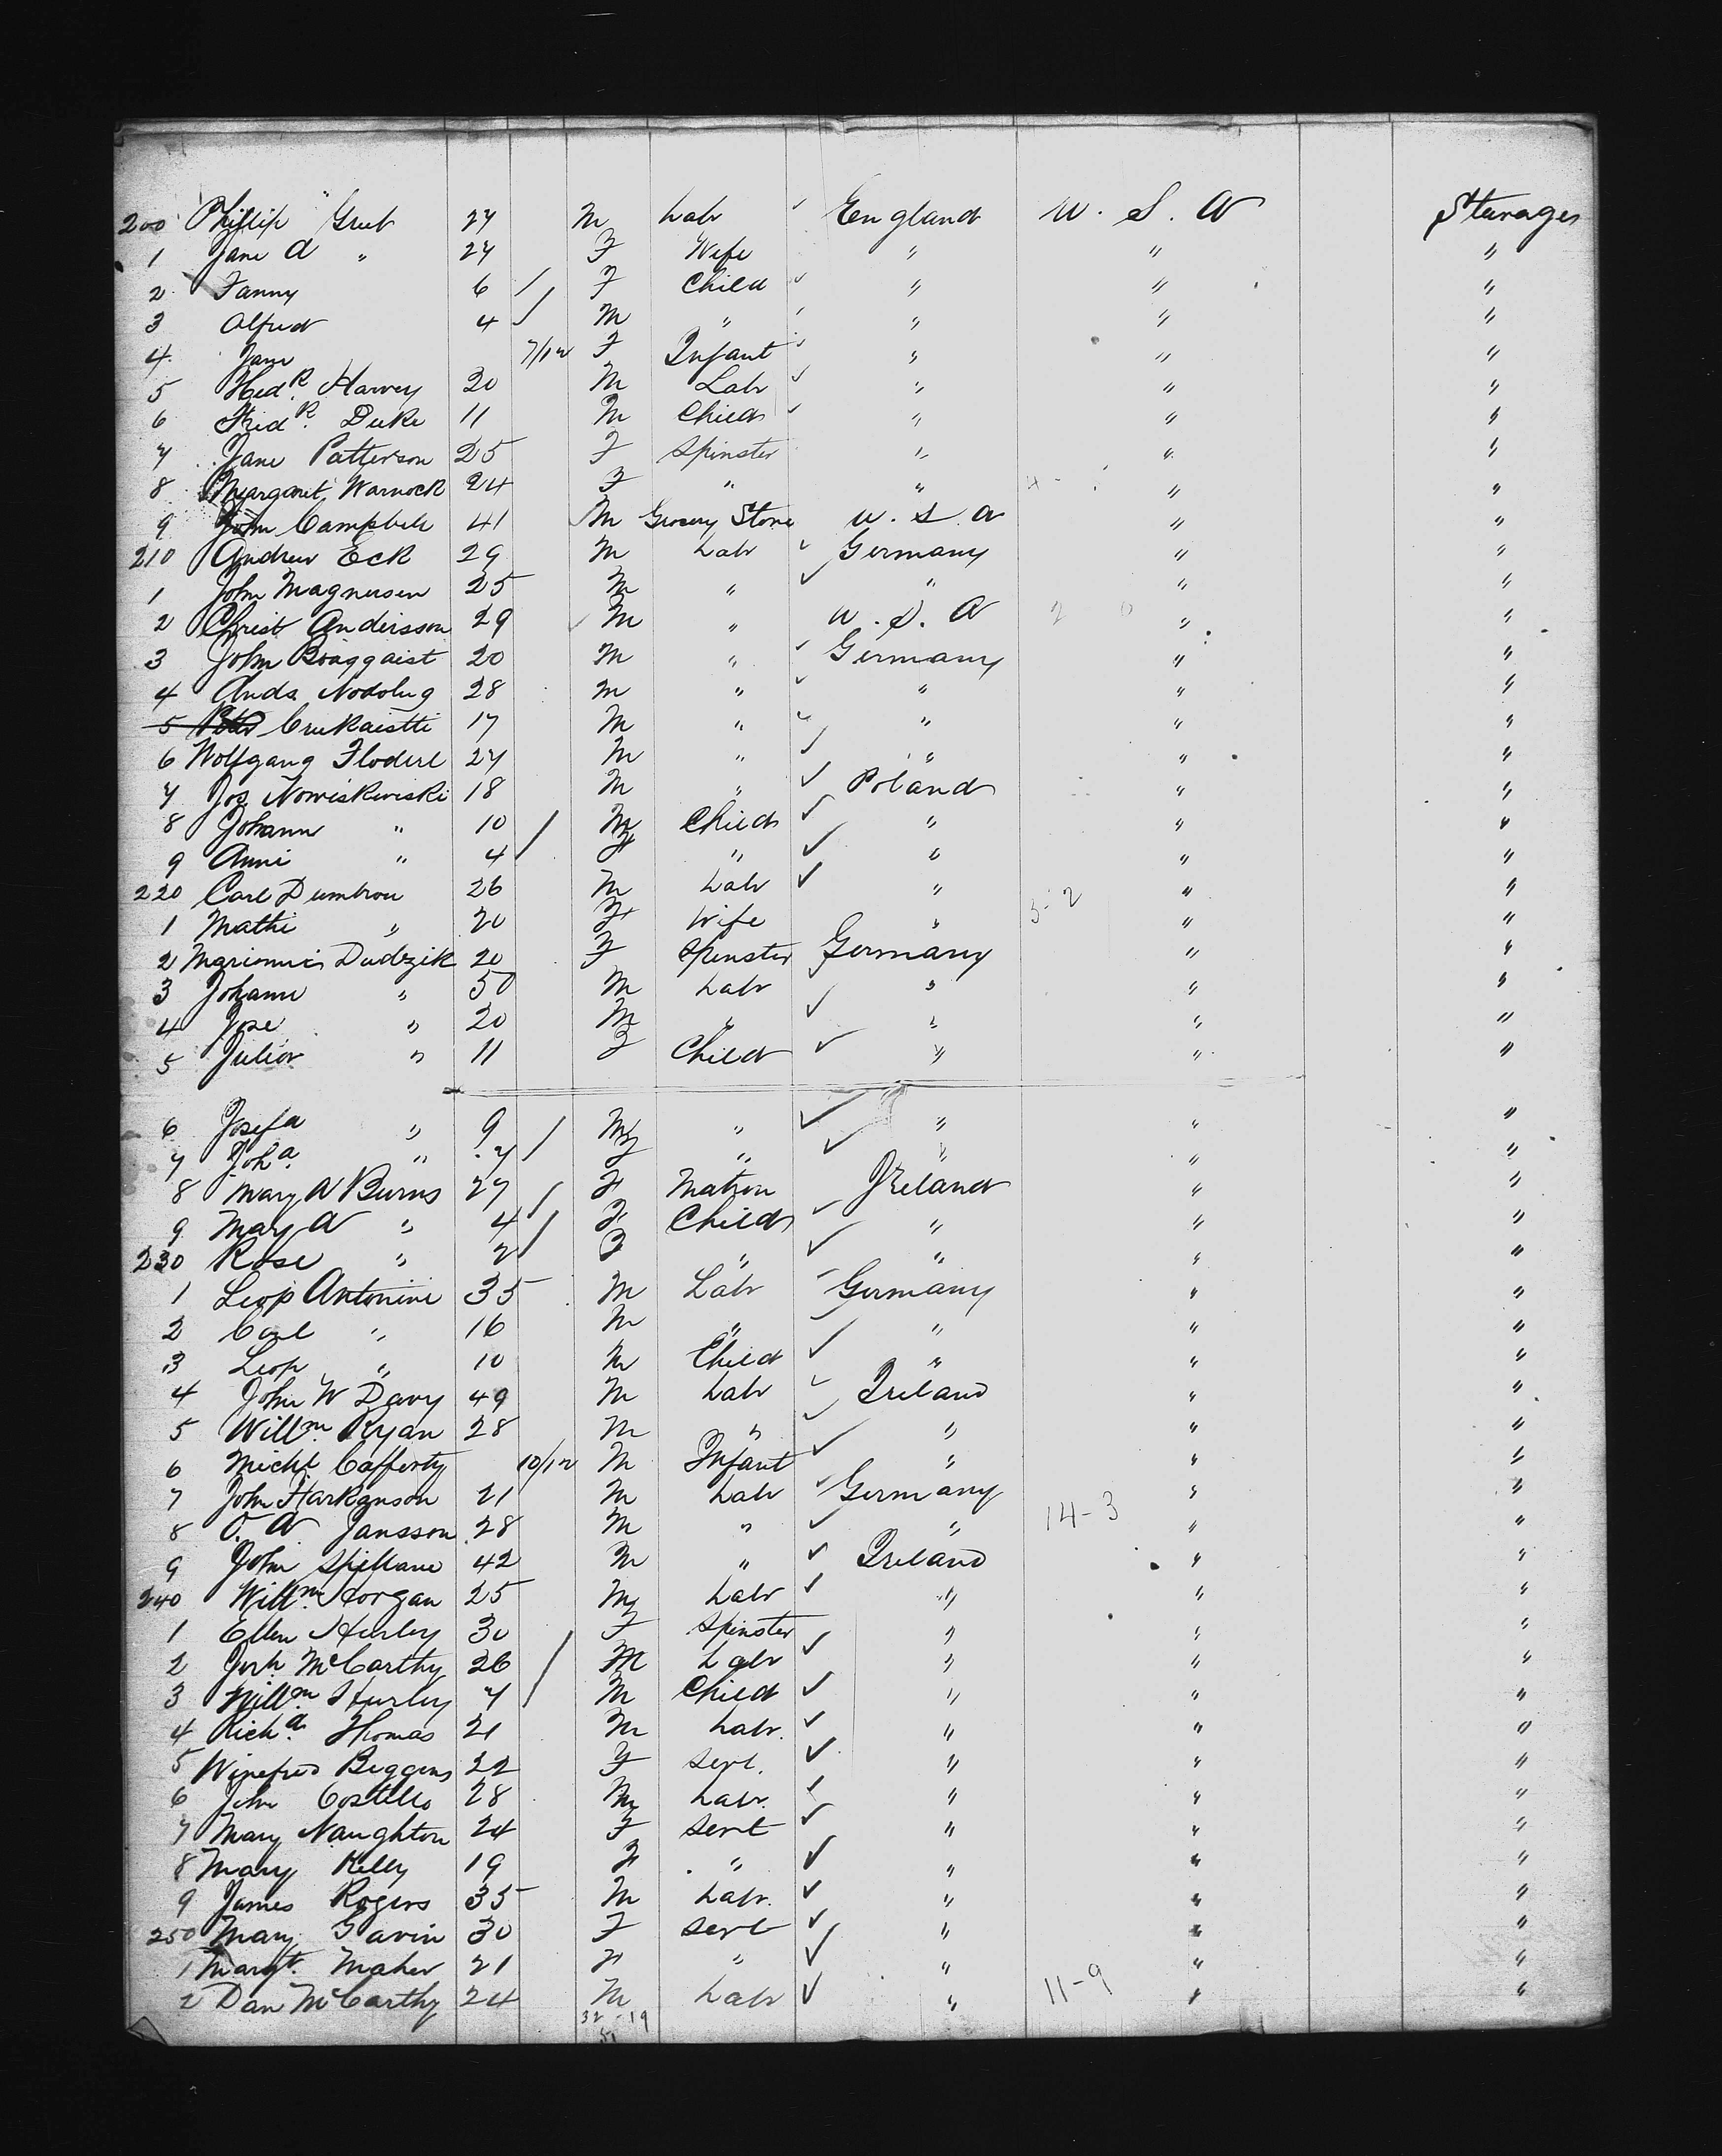 200 Phillip Grub 27 M Labr England U. S. A Steerages
1 Jane A " 27 F Wife " " "
2 Fanny 6 F Child " " "
3 Alfred 4 M " " " "
4 Jane 7/12 F Infant " " "
5 Fredk Harvey 20 M Labr " " "
6 Fredk Duke 11 M Child " " "
7 Jane Patterson 25 F Spinster " " "
8 Margaret Warnock 24 F " " " "
9 John Campbell 41 M Grocery Store U. S. A " "
210 Andrew Eck 29 M Labr Germany " "
1 John Magnusen 25 M " " " "
2 Christ Andersson 29 M " U. S. A " "
3 John 20 M " Germany " "
4 Ands 28 M " " " "
5 17 M " " " "
6 Wolfgang Floderl 27 M " " " "
7 Jos Nowiskiwiski 18 M " Poland " "
8 Johann " 10 M Child " " "
9 Anni " 4 F " " " "
220 Carl Dumbrow 26 M Labr " 3-2 " "
1 Mathi " 20 F Wife " " "
2 Dudzik 20 F Spinster Germany " "
3 Johann " 50 M Labr " " "
4 Jose " 20 M " " " "
5 Julior " 11 F Child " " "
6 Josefa " 9 " " " "
7 Joha " 7 " " " "
8 Mary A Burns 27 F Matron Ireland " "
9 Mary A " 4 F Child " " "
230 Rose " 2 F " " " "
1 Leop Antonini 35 M Labr Germany " "
2 Carl " 16 M " " " "
3 Leop " 10 M Child " " "
4 John W Davy 49 M Labr Ireland " "
5 Willm Ryan 28 M " " " "
6 Michl Cafferty 10/12 M Infant " " "
7 John Harkanson 21 M Labr Germany " "
8 O. A Jansson 28 M " " 14-3 " "
9 John Spillane 42 M " Ireland " "
240 Willm Horgan 25 M Labr " " "
1 Ellen Hurley 30 F Spinster " " "
2 McCarthy 26 M Labr " " "
3 Willm Hurley 7 M Child " " "
4 Richd Thomas 21 M Labr. " " "
5 Winefred Beggins 22 F Servt. " " "
6 John Costello 28 M Labr. " " "
7 Mary Naughton 24 F Servt " " "
8 Mary Kelly 19 F " " " "
9 James Rogers 35 M Labr. " " "
250 Mary Gavin 30 F Servt " " "
1 Margt. Maher 21 F " " " "
2 Dan McCarthy 24 M Labr " 11-9 " "
32-19
51